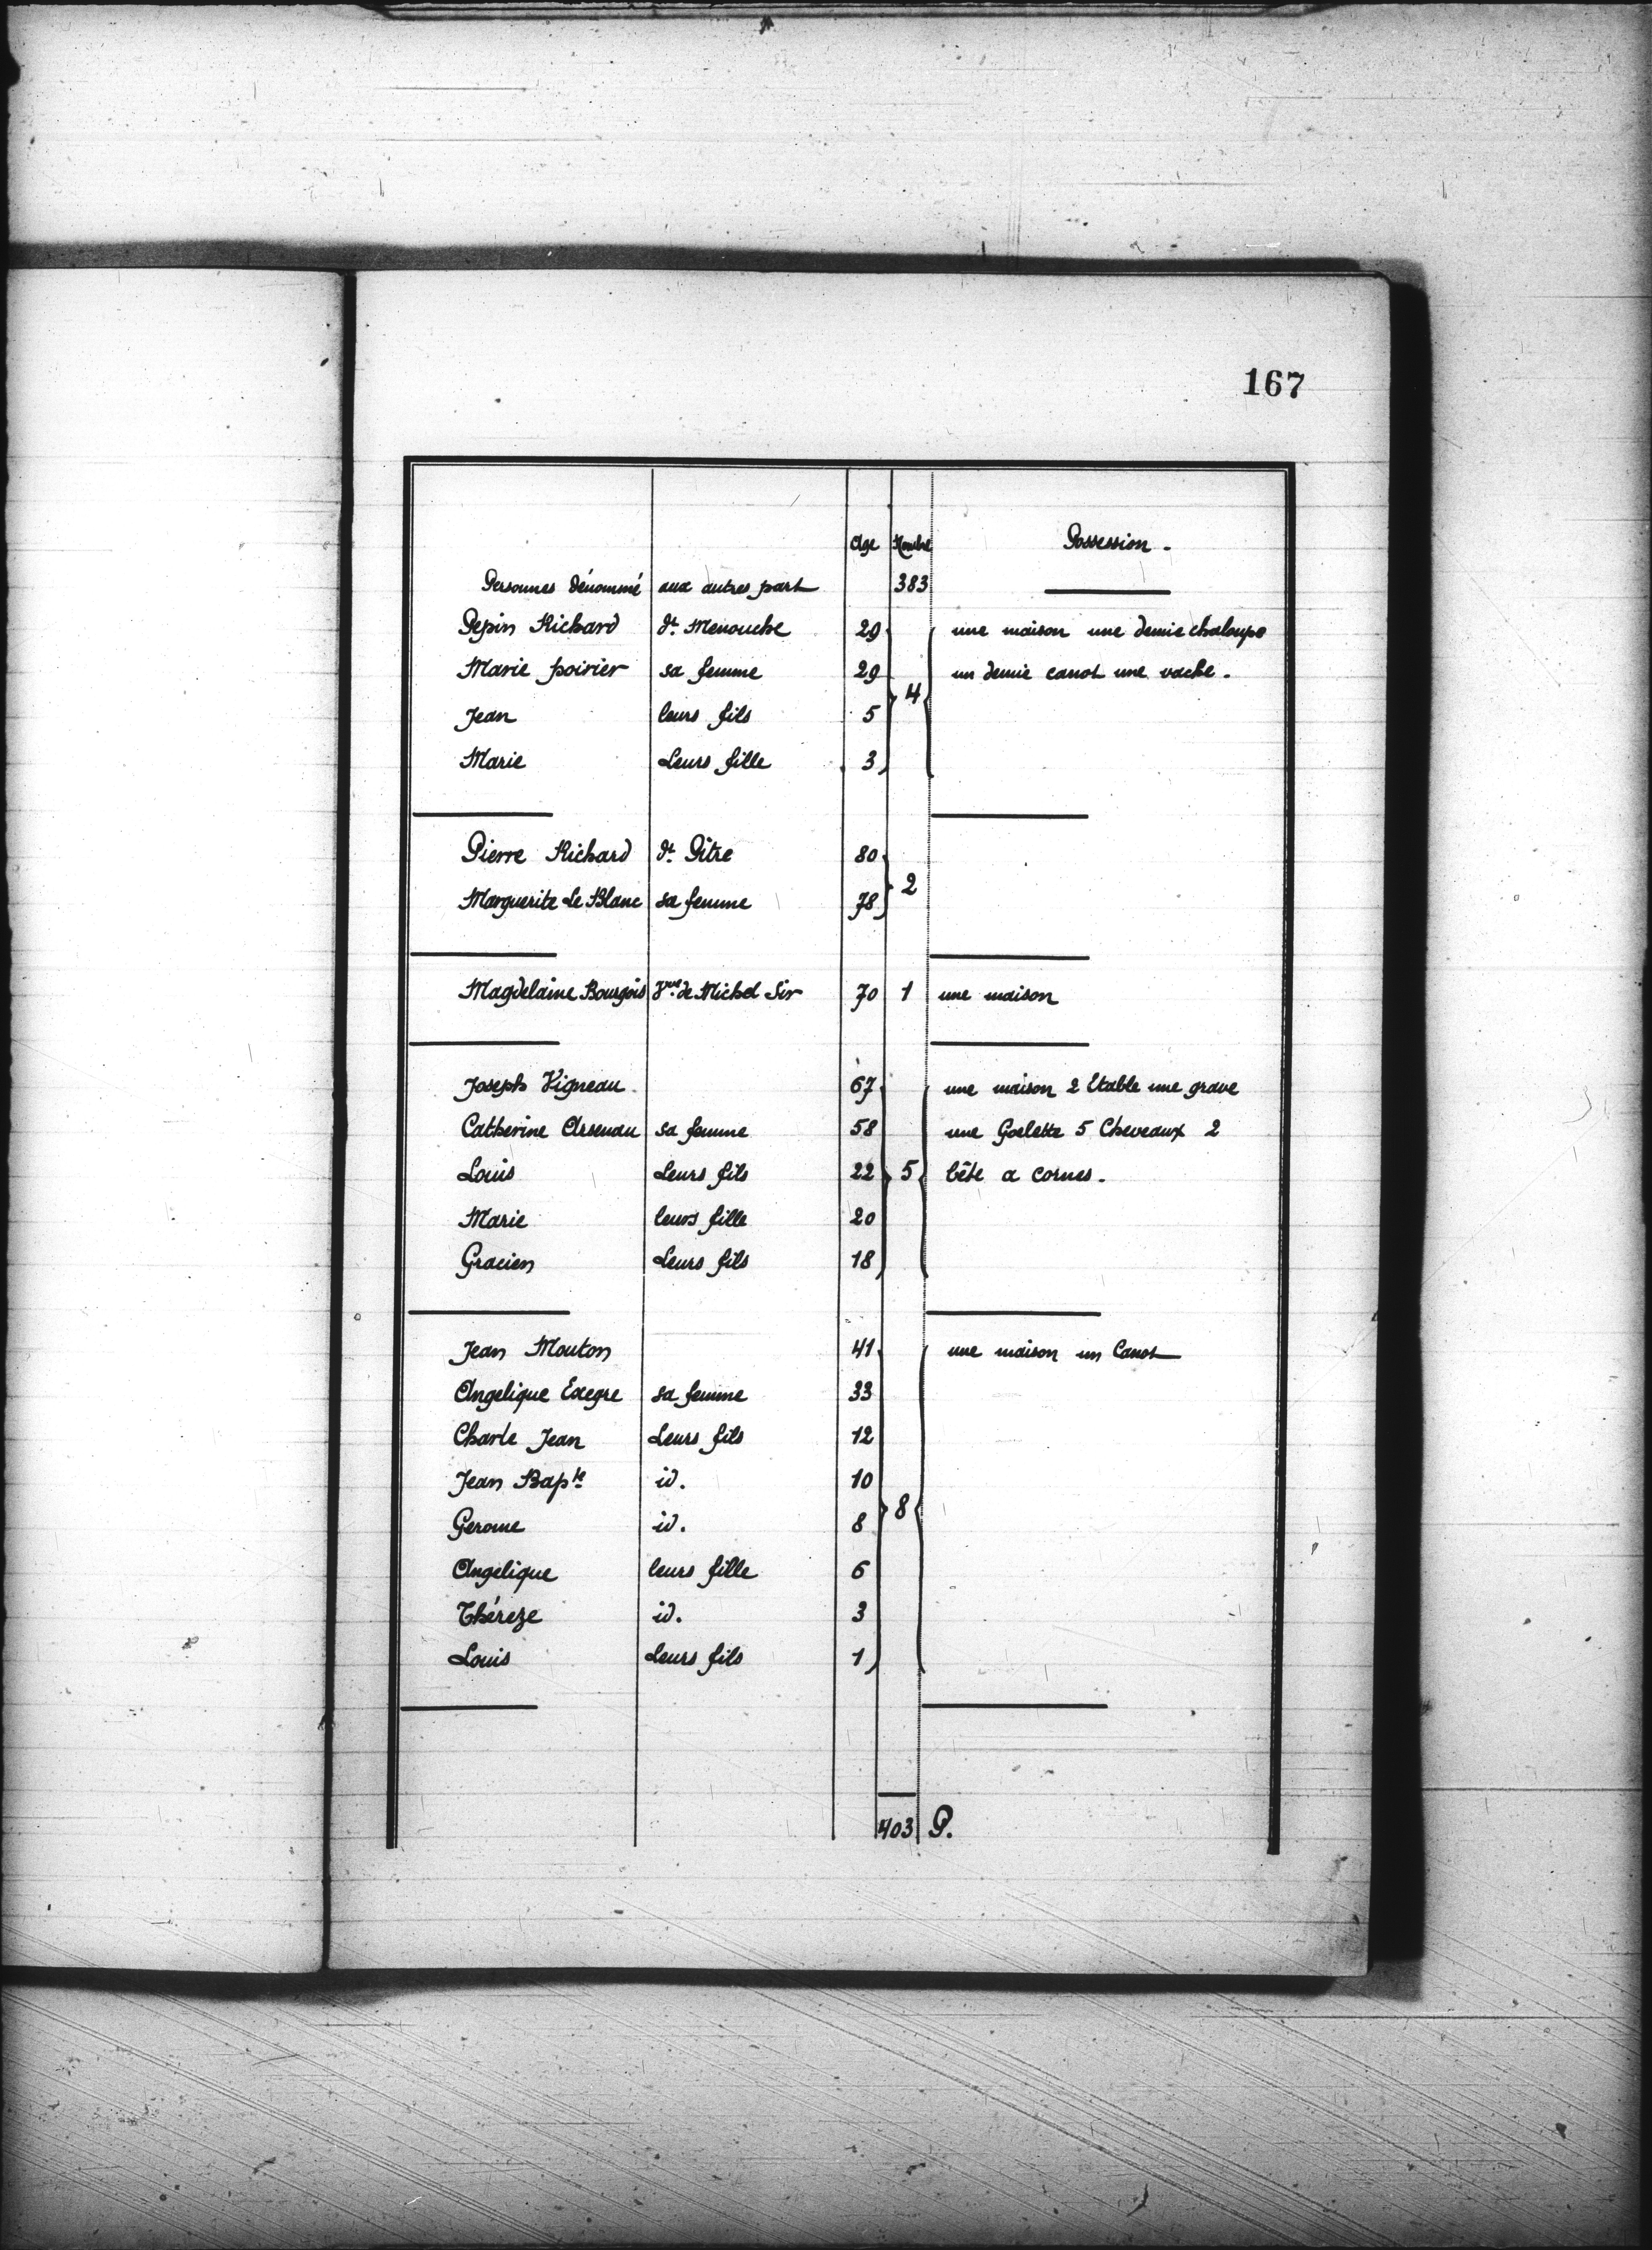 167
Age Nombre Possession.
Personnes dénommé aux autres part 383
Pepin Richard dt. Menouche 29 une maison une demie chaloupe
Marie poirier sa femme 29 un demie canot une vache.
4
Jean leurs fils 5
Marie Leurs fille 3
Pierre Richard dt. Pitre 80
2
Marguerite Le Blanc sa femme 78
Magdelaine Bourgois Vve. de Michel Sir 70 1 une maison
Joseph Vigneau 67 une maison 2 Etable une grave
Catherine Arsenau sa femme 58 une Goelette 5 Cheveaux 2
Louis Leurs fils 22 5 bête a cornes.
Marie leurs fille 20
Gracien Leurs fils 18
Jean Mouton 41 une maison un Canot
Angelique Exegre sa femme 33
Charle Jean Leurs fils 12
Jean Bapte. id. 10
8
Gerome id. 8
Angelique leurs fille 6
Théreze id. 3
Louis Leurs fils 1
403 P.